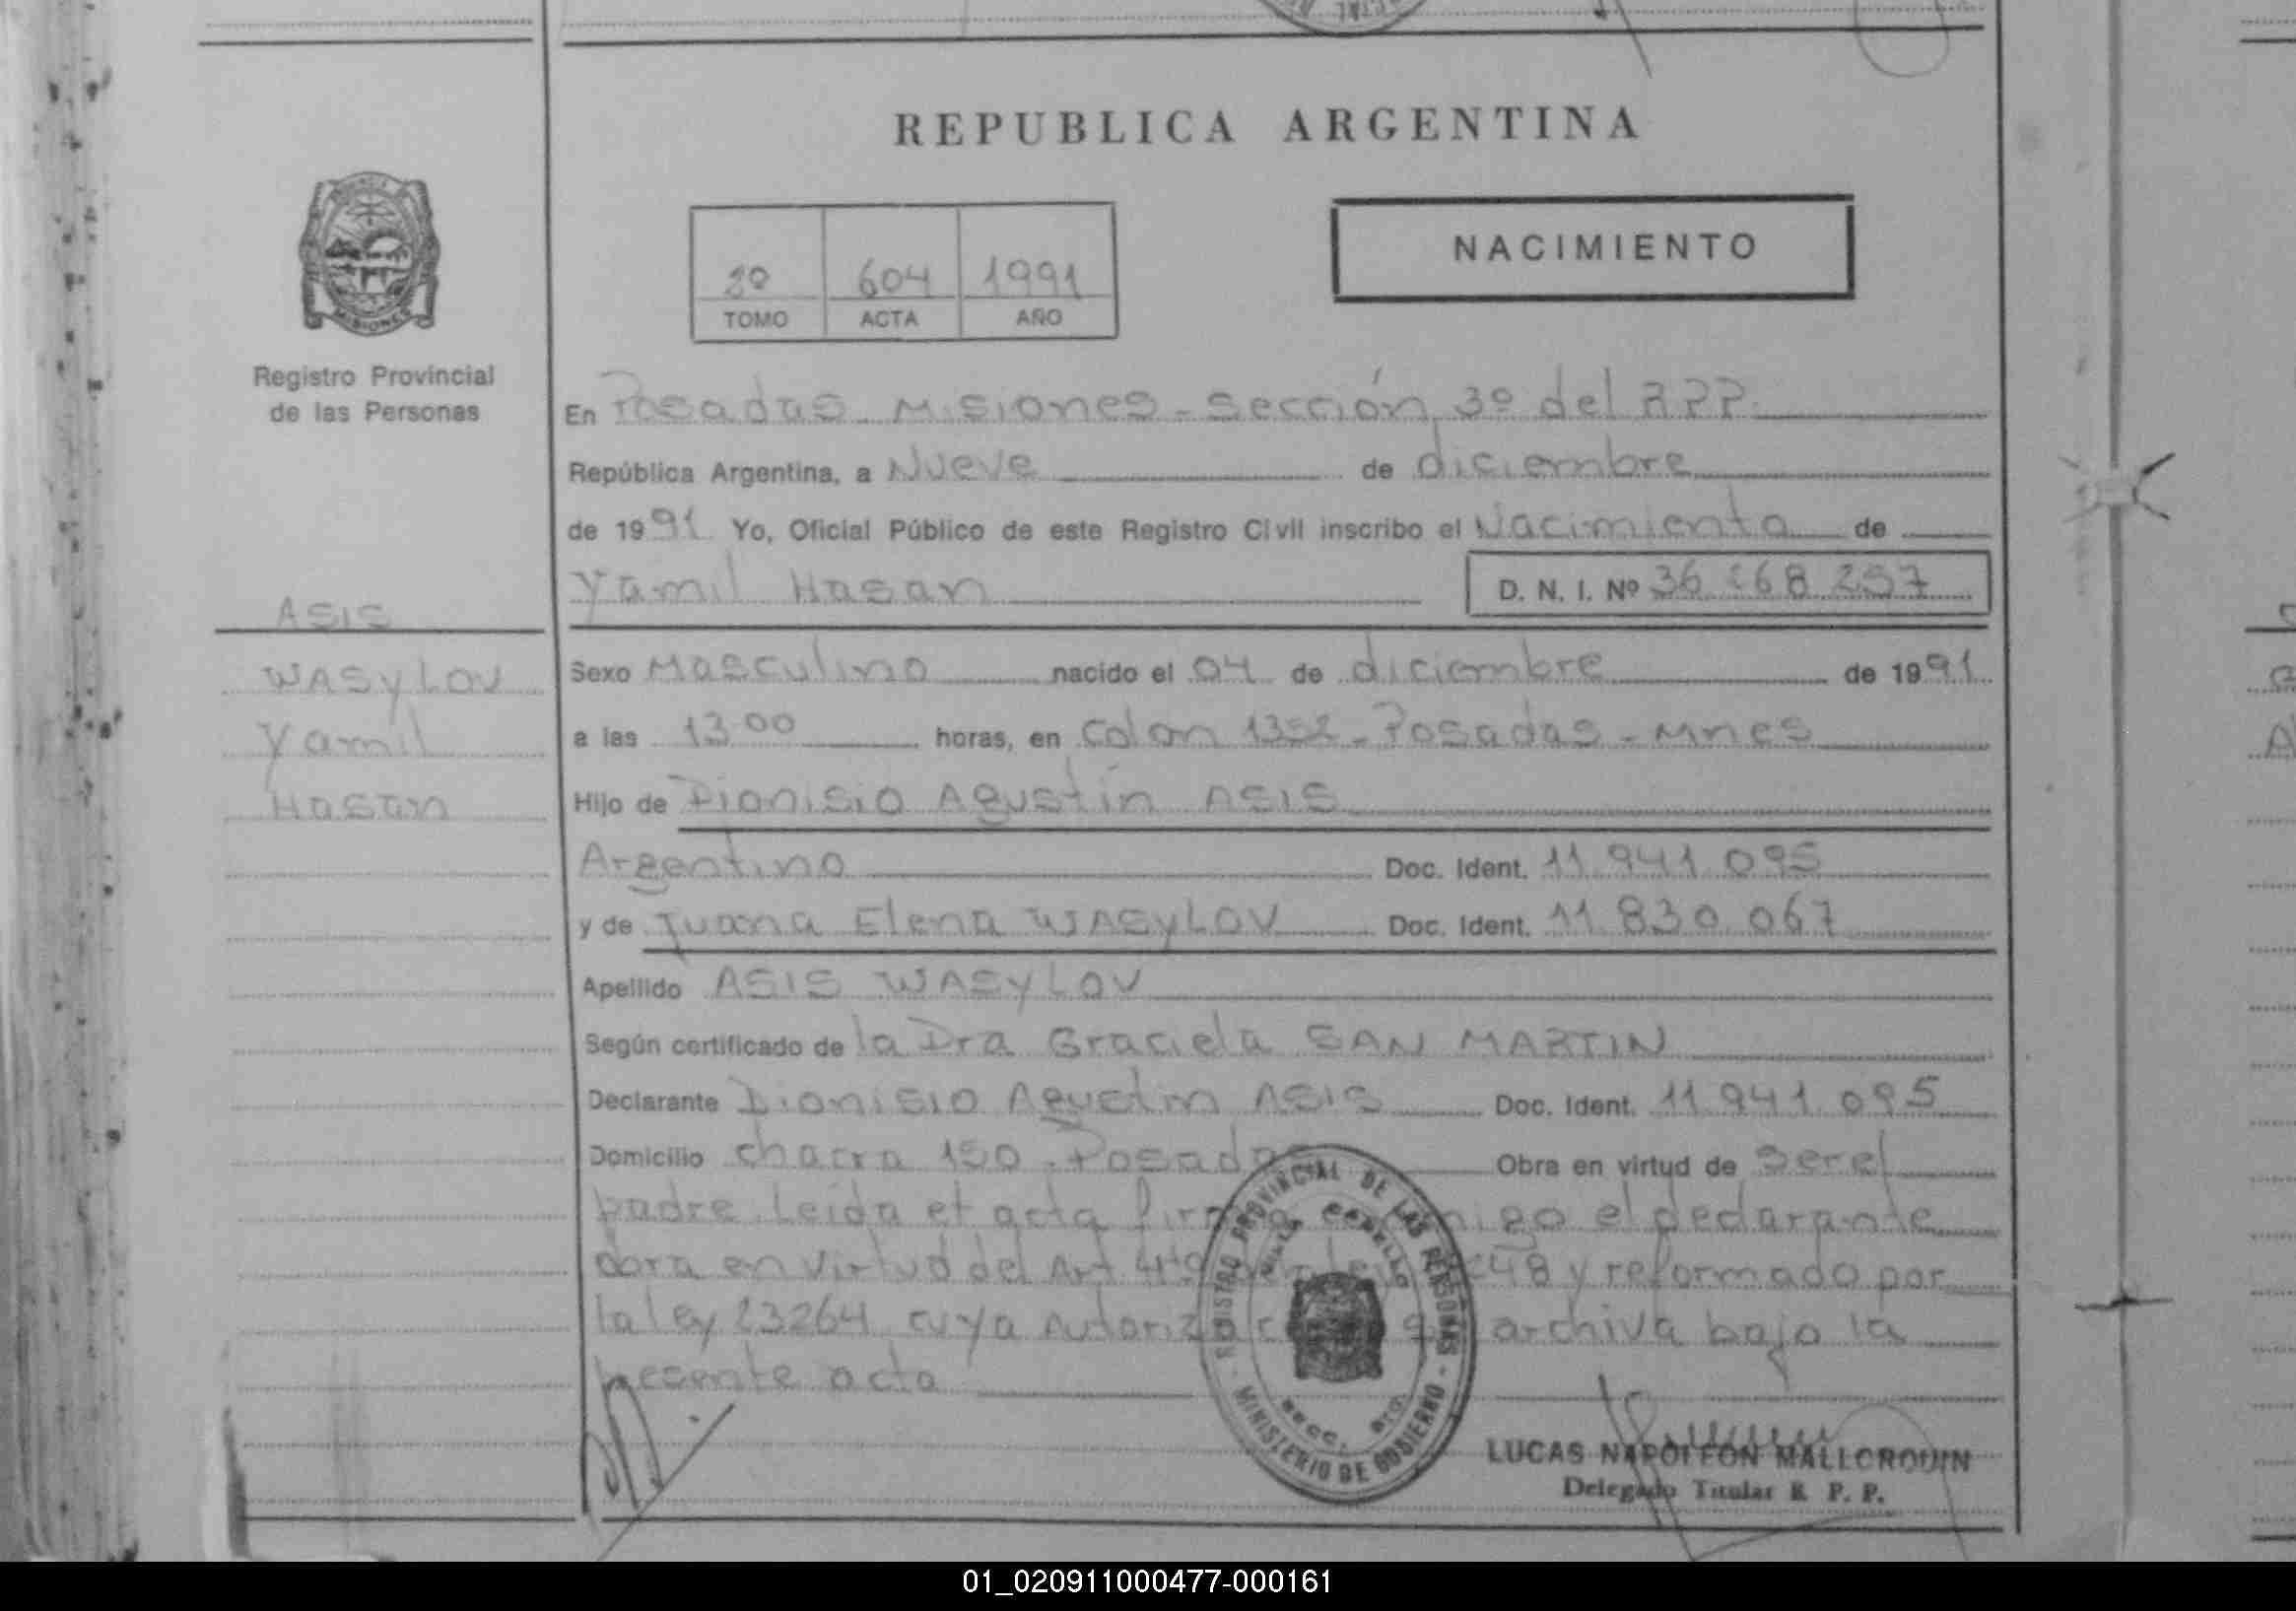 REPUBLICA ARGENTINA
NACIMIENTO
2º 604 1991
TOMO ACTA AÑO
MISIONES
Registro Provincial
de las Personas
En Posadas Misiones - Sección 3º del RPP
República Argentina, a Nueve de diciembre
de 1991 Yo, Oficial Público de este Registro Civil inscribo el Nacimiento de
Yamil Hasan D. N. I. Nº 36 268 257
ASIS
WASYLOV
Yamil
Hasan
Sexo Masculino nacido el 04 de diciembre de 1991
a las 13 00 horas, en Colon 1352 - Posadas - Mnes
Hijo de Dionisio Agustín ASIS
Argentino Doc. Ident. 11 941 095
y de Juana Elena WASYLOV Doc. Ident. 11 830 067
Apellido ASIS WASYLOV
Según certificado de la Dra Graciela SAN MARTIN
Declarante Dionisio Agustin ASIS Doc. Ident. 11 941 095
Domicilio chacra 150. Posadas Obra en virtud de ser el
padre. Leída el acta firma conmigo el declarante
obra en virtud del Art 4º 248 y reformado por
la ley 23264 cuya Autorización se archiva bajo la
presente acta
REGISTRO PROVINCIAL DE LAS PERSONAS
MINISTERIO DE GOBIERNO
LUCAS NAPOLEON MALLORQUIN
Delegado Titular R. P. P.
01_020911000477-000161